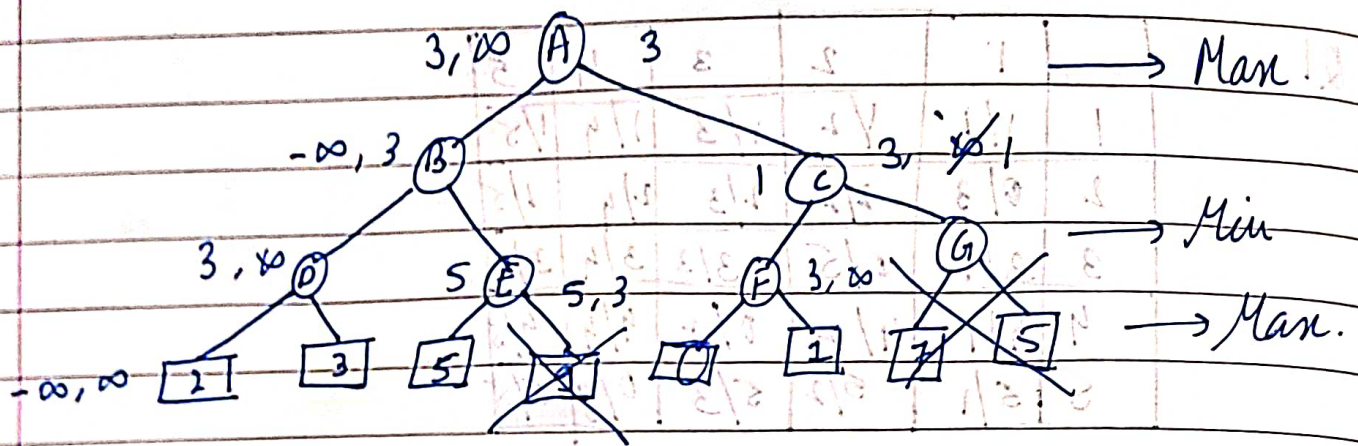 3, ∞ A 3 → Max.
-∞, 3 B 1 C 3, ∞ 1
→ Min
3, ∞ D 5 E 5, 3 F 3, ∞ G
→ Max.
-∞, ∞ 2 3 5 0 1 7 5